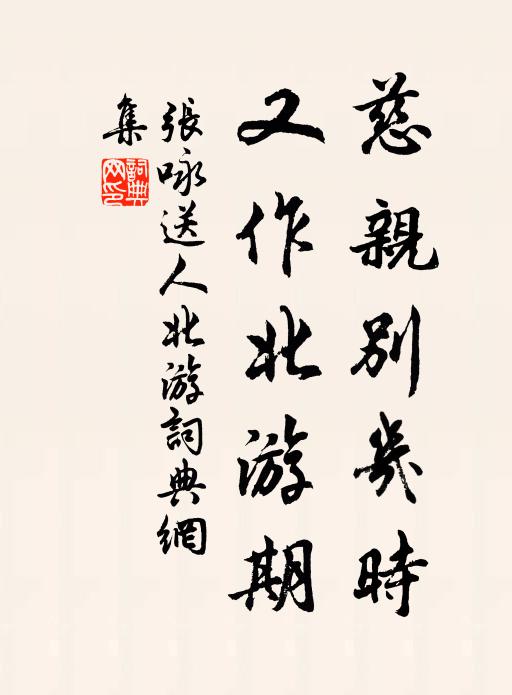 慈親別幾時
又作北游期
張咏送人北游詞典網
集
詞典網印